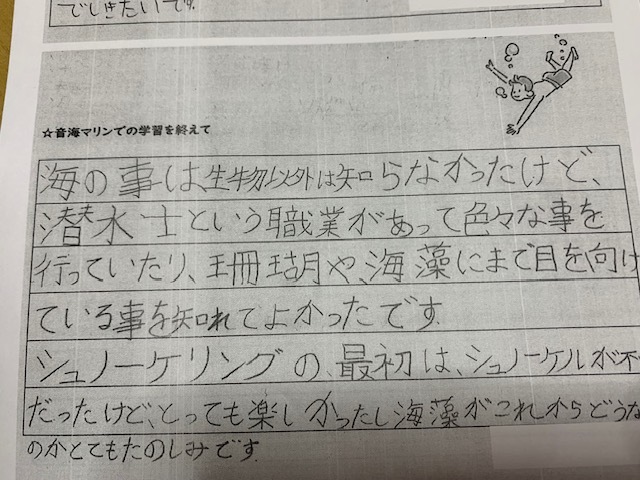 でしきたいです。
☆音海マリンでの学習を終えて
海の事は、生物以外は知らなかったけど、
潜水士という職業があって色々な事を
行っていたり、珊瑚や、海藻にまで目を向け
ている事を知れてよかったです。
シュノーケリングの、最初は、シュノーケルが不
だったけど、とっても楽しかったし海藻がこれからどうな
のかとてもたのしみです。